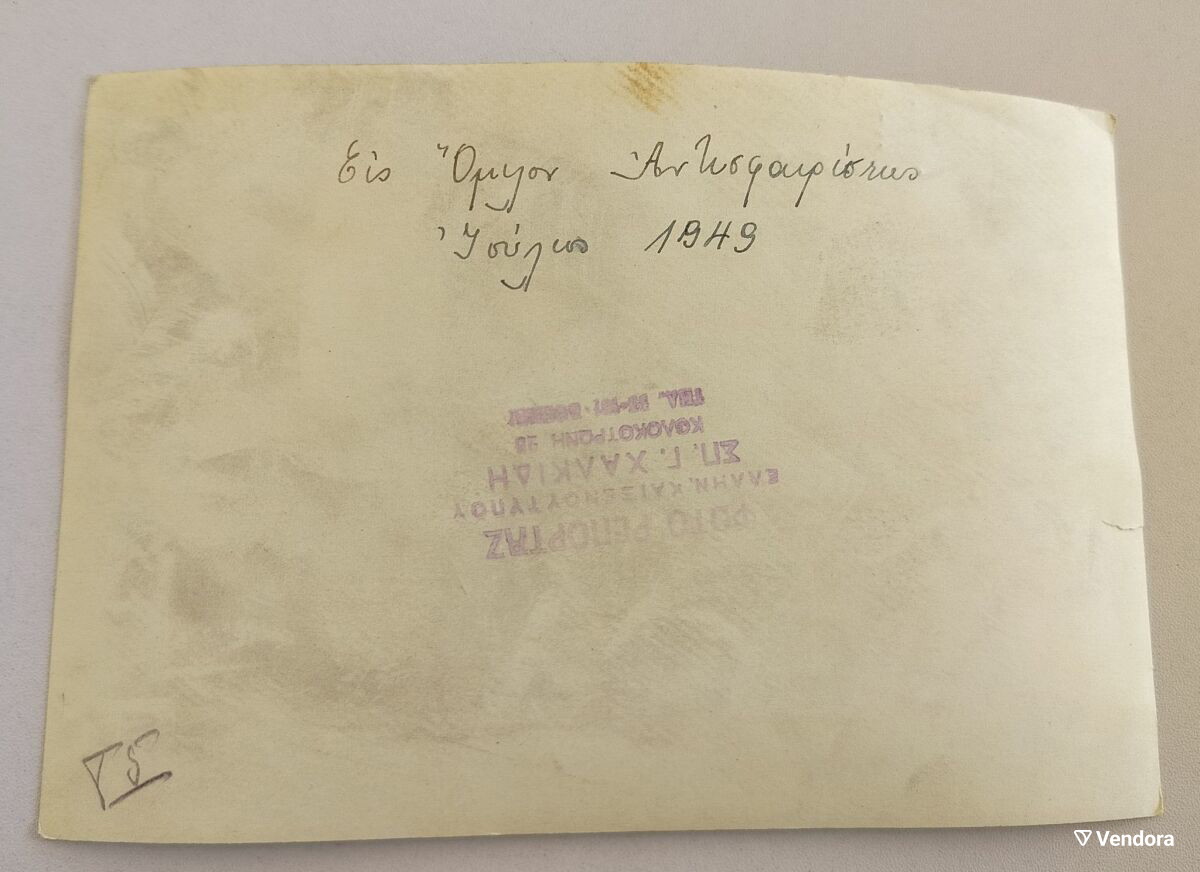 Εἰς Ὅμιλον Ἀντισφαιρίσεως
Ἰούλιος 1949
ΦΩΤΟ ΡΕΠΟΡΤΑΖ
ΕΛΛΗΝ. ΚΑΙ ΞΕΝΟΥ ΤΥΠΟΥ
ΣΠ. Γ. ΧΑΛΚΙΔΗ
ΚΟΛΟΚΟΤΡΩΝΗ 25
ΤΗΛ.
Vendora